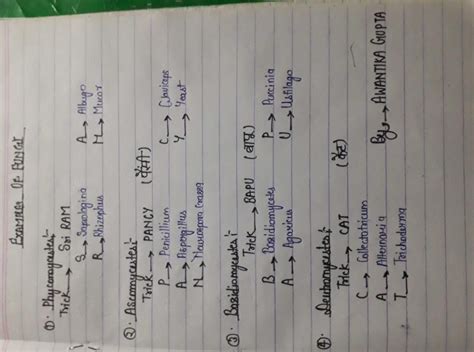 EXAMPLES OF FUNGI
① Phycomycetes:
Trick → Sri RAM
S → Saprolegnia A → Albugo
R → Rhizophus M → Mucor
② Ascomycetes:
Trick → PANCY (पैंसी)
P → Penicillium C → Claviceps
A → Aspergillus Y → Yeast
N → Neurospora
③ Basidiomycetes:
Trick → BAPU (बापू)
B → Basidiomycetes P → Puccinia
A → Agaricus U → Ustilago
④ Deutromycetes:
Trick → CAT (कैट)
C → Colletotricum
A → Alternaria
T → Trichoderma By → AWANTIKA GUPTA